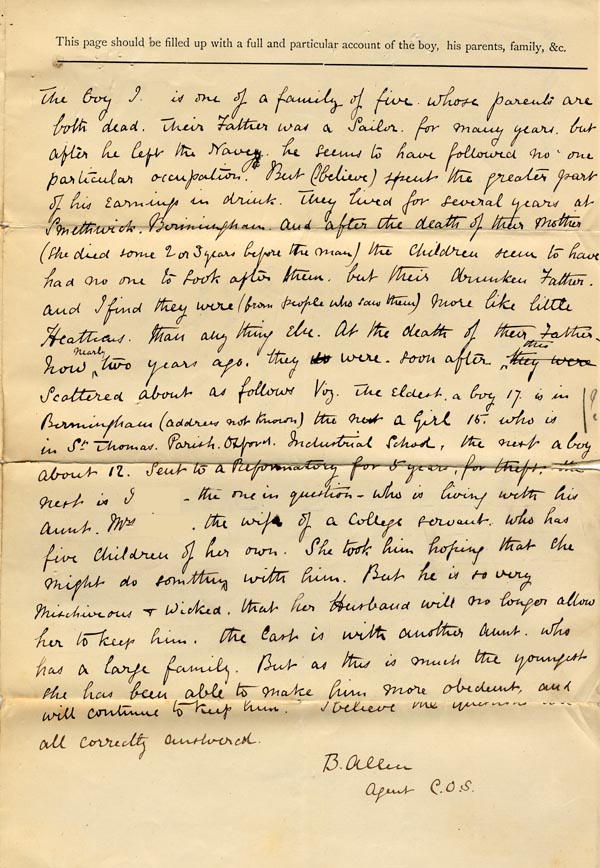 This page should be filled up with a full and particular account of the boy, his parents, family, &c.
The boy I. is one of a family of five. whose parents are
both dead. Their Father was a Sailor. for many years. but
after he left the Navey. he seems to have followed no one
particular occupation. But (believe) spent the greater part
of his Earnings in drink. They lived for several years at
Smethwick. Bermingham. and after the death of their Mother
(she died some 2 or 3 years before the man) the children seem to have
had no one to look after them. but their drunken Father.
and I find they were (from people who saw them) more like little
Heathens. than any thing Else. At the death of their Father-
now nearly two years ago. they were. soon after this they were
Scattered about as follows Viz. The Eldest, a boy 17. is in
Bermingham (address not known) the next a Girl 15. who is
in St Thomas. Parish. Oxford. Industrial School, the next a boy
about 12. Sent to a Reformatory for 5 years, for theft. the
next is I - the one in question - who is living with his
Aunt. Mrs . the wife of a College servant. who has
five children of her own. She took him hoping that she
might do somthing with him. But he is so very
Mischiveous & Wicked. that her Husband will no longer allow
her to keep him. the Last is with another Aunt. who
has a large family. But as this is much the youngest
she has been able to make him more obedient, and
will continue to keep him. I believe the questions
all correctly answered.
B. Allen
Agent C.O.S.